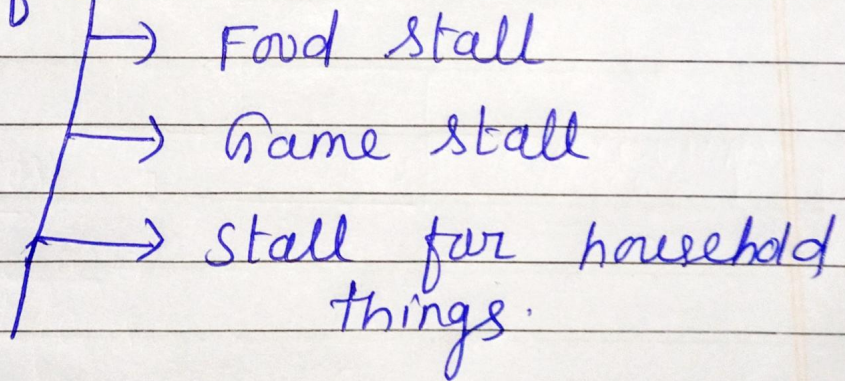 → Food stall
→ Game stall
→ Stall for household
things.